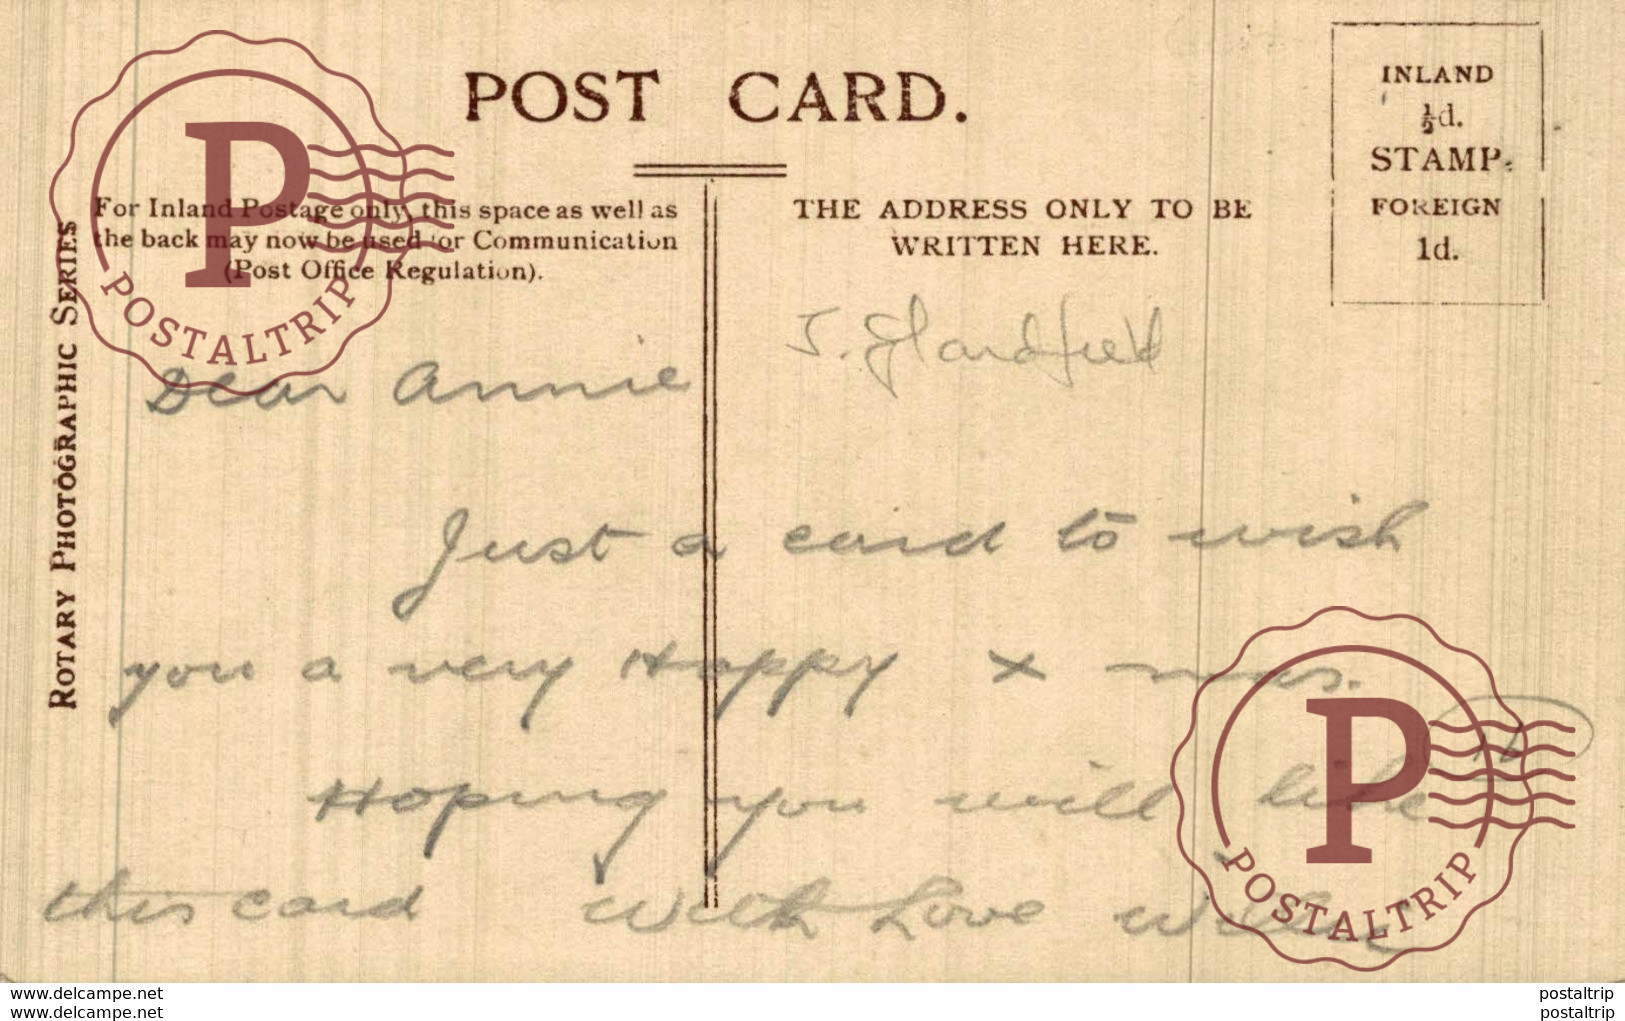 POST CARD.
INLAND
½d.
STAMP.
FOREIGN
1d.
For Inland Postage only, this space as well as
the back may now be used for Communication
(Post Office Regulation).
THE ADDRESS ONLY TO BE
WRITTEN HERE.
ROTARY PHOTOGRAPHIC SERIES
J.
Dear Annie
Just a card to wish
you a very Happy X mas.
Hoping you will like
this card With Love
P
POSTALTRIP
P
POSTALTRIP
www.delcampe.net
www.delcampe.net
postaltrip
postaltrip